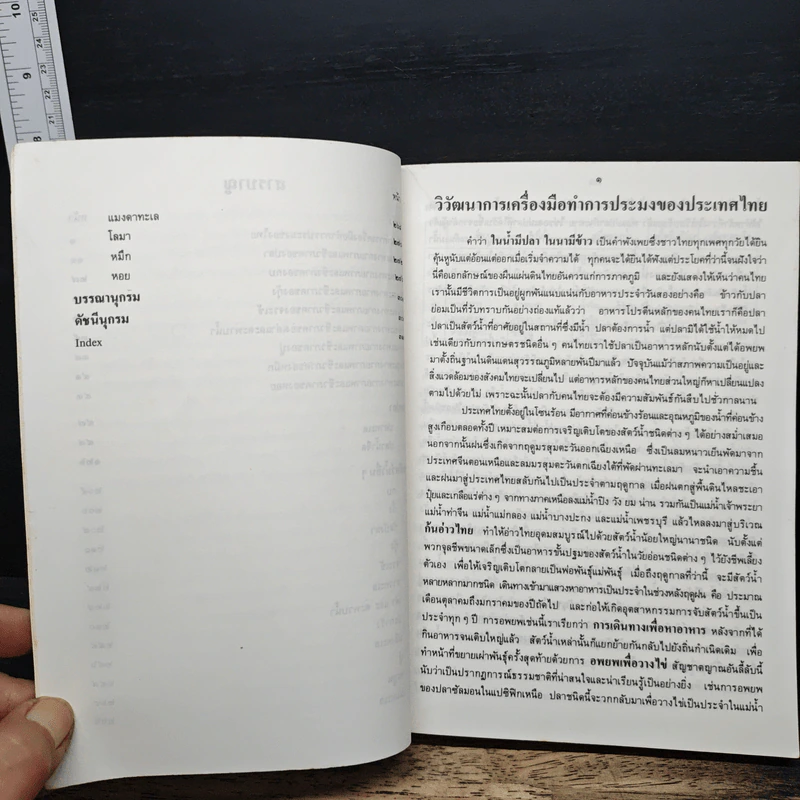 10
25
24
9
23
22
21
8
แมงดาทะเล
โลมา
หมึก
หอย
บรรณานุกรม
ดัชนีนุกรม
Index
๑
วิวัฒนาการเครื่องมือทำการประมงของประเทศไทย
คำว่า ในน้ำมีปลา ในนามีข้าว เป็นคำพังเพยซึ่งชาวไทยทุกเพศทุกวัยได้ยิน
คุ้นหูนับแต่อ้อนแต่ออกเมื่อเริ่มจำความได้ ทุกคนจะได้ยินได้ฟังแต่ประโยคที่ว่านี้จนฝังใจว่า
นี่คือเอกลักษณ์ของผืนแผ่นดินไทยอันควรแก่การภาคภูมิ และยังแสดงให้เห็นว่าคนไทย
เรานั้นมีชีวิตการเป็นอยู่ผูกพันแนบแน่นกับอาหารประจำวันสองอย่างคือ ข้าวกับปลา
ย่อมเป็นที่รับทราบกันอย่างถ่องแท้แล้วว่า อาหารโปรตีนหลักของคนไทยเราก็คือปลา
ปลาเป็นสัตว์น้ำที่อาศัยอยู่ในสถานที่ซึ่งมีน้ำ ปลาต้องการน้ำ แต่ปลามิได้ใช้น้ำให้หมดไป
เช่นเดียวกับการเกษตรชนิดอื่น ๆ คนไทยเราใช้ปลาเป็นอาหารหลักนับตั้งแต่ได้อพยพ
มาตั้งถิ่นฐานในดินแดนสุวรรณภูมิหลายพันปีมาแล้ว ปัจจุบันแม้ว่าสภาพความเป็นอยู่และ
สิ่งแวดล้อมของสังคมไทยจะเปลี่ยนไป แต่อาหารหลักของคนไทยส่วนใหญ่ก็หาเปลี่ยนแปลง
ตามไปด้วยไม่ เพราะฉะนั้นปลากับคนไทยจะต้องมีความสัมพันธ์กันสืบไปชั่วกาลนาน
ประเทศไทยตั้งอยู่ในโซนร้อน มีอากาศที่ค่อนข้างร้อนและอุณหภูมิของน้ำที่ค่อนข้าง
สูงเกือบตลอดทั้งปี เหมาะสมต่อการเจริญเติบโตของสัตว์น้ำชนิดต่าง ๆ ได้อย่างสม่ำเสมอ
นอกจากนั้นฝนซึ่งเกิดจากฤดูมรสุมตะวันออกเฉียงเหนือ ซึ่งเป็นลมหนาวเย็นพัดมาจาก
ประเทศจีนตอนเหนือและลมมรสุมตะวันตกเฉียงใต้ที่พัดผ่านทะเลมา จะนำเอาความชื้น
และฝนมาสู่ประเทศไทยสลับกันไปเป็นประจำตามฤดูกาล เมื่อฝนตกสู่พื้นดินไหลชะเอา
ปุ๋ยและเกลือแร่ต่าง ๆ จากทางภาคเหนือลงแม่น้ำปิง วัง ยม น่าน รวมกันเป็นแม่น้ำเจ้าพระยา
แม่น้ำท่าจีน แม่น้ำแม่กลอง แม่น้ำบางปะกง และแม่น้ำเพชรบุรี แล้วไหลลงมาสู่บริเวณ
ก้นอ่าวไทย ทำให้อ่าวไทยอุดมสมบูรณ์ไปด้วยสัตว์น้ำน้อยใหญ่นานาชนิด นับตั้งแต่
พวกจุลชีพขนาดเล็กซึ่งเป็นอาหารขั้นปฐมของสัตว์น้ำในวัยอ่อนชนิดต่าง ๆ ไว้ยังชีพเลี้ยง
ตัวเอง เพื่อให้เจริญเติบโตกลายเป็นพ่อพันธุ์แม่พันธุ์ เมื่อถึงฤดูกาลที่ว่านี้ จะมีสัตว์น้ำ
หลายหลากมากชนิด เดินทางเข้ามาแสวงหาอาหารเป็นประจำในช่วงหลังฤดูฝน คือ ประมาณ
เดือนตุลาคมถึงมกราคมของปีถัดไป และก่อให้เกิดอุตสาหกรรมการจับสัตว์น้ำขึ้นเป็น
ประจำทุก ๆ ปี การอพยพเช่นนี้เราเรียกว่า การเดินทางเพื่อหาอาหาร หลังจากที่ได้
กินอาหารจนเติบใหญ่แล้ว สัตว์น้ำเหล่านั้นก็แยกย้ายกันกลับไปยังถิ่นกำเนิดเดิม เพื่อ
ทำหน้าที่ขยายเผ่าพันธุ์ครั้งสุดท้ายด้วยการ อพยพเพื่อวางไข่ สัญชาตญาณอันลี้ลับนี้
นับว่าเป็นปรากฏการณ์ธรรมชาติที่น่าสนใจและน่าเรียนรู้เป็นอย่างยิ่ง เช่นการอพยพ
ของปลาซัลมอนในแปซิฟิกเหนือ ปลาชนิดนี้จะวกกลับมาเพื่อวางไข่เป็นประจำในแม่น้ำ